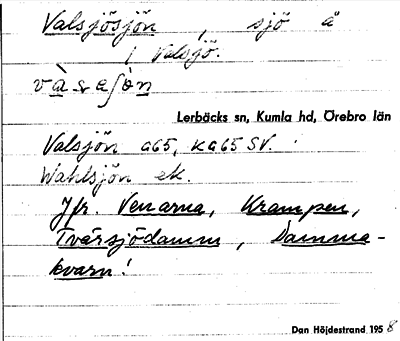 Valsjösjön, sjö å
i Valsjö.
Lerbäcks sn, Kumla hd, Örebro län
Valsjön a65, ka65 SV.
Wahlsjön ek.
Jfr. Venarna, Krampen,
Tvärsjödamm, Damma-
kvarn!
Dan Höjdestrand 1958